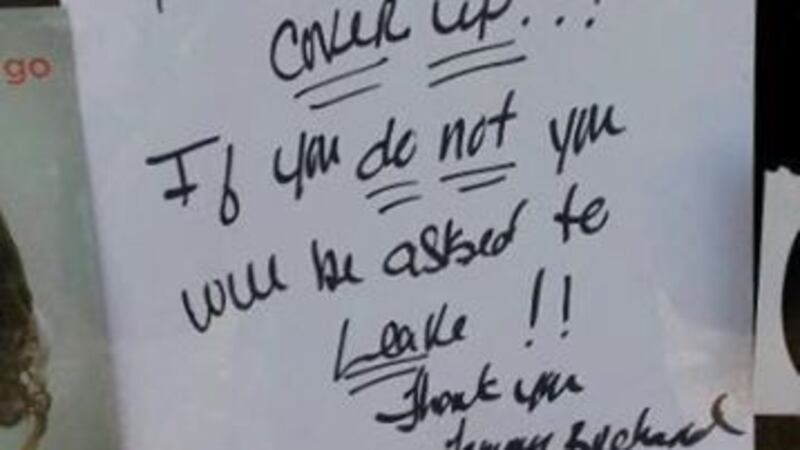 go
COVER UP...!
If you do not you
will be asked to
Leave !!
Thank you